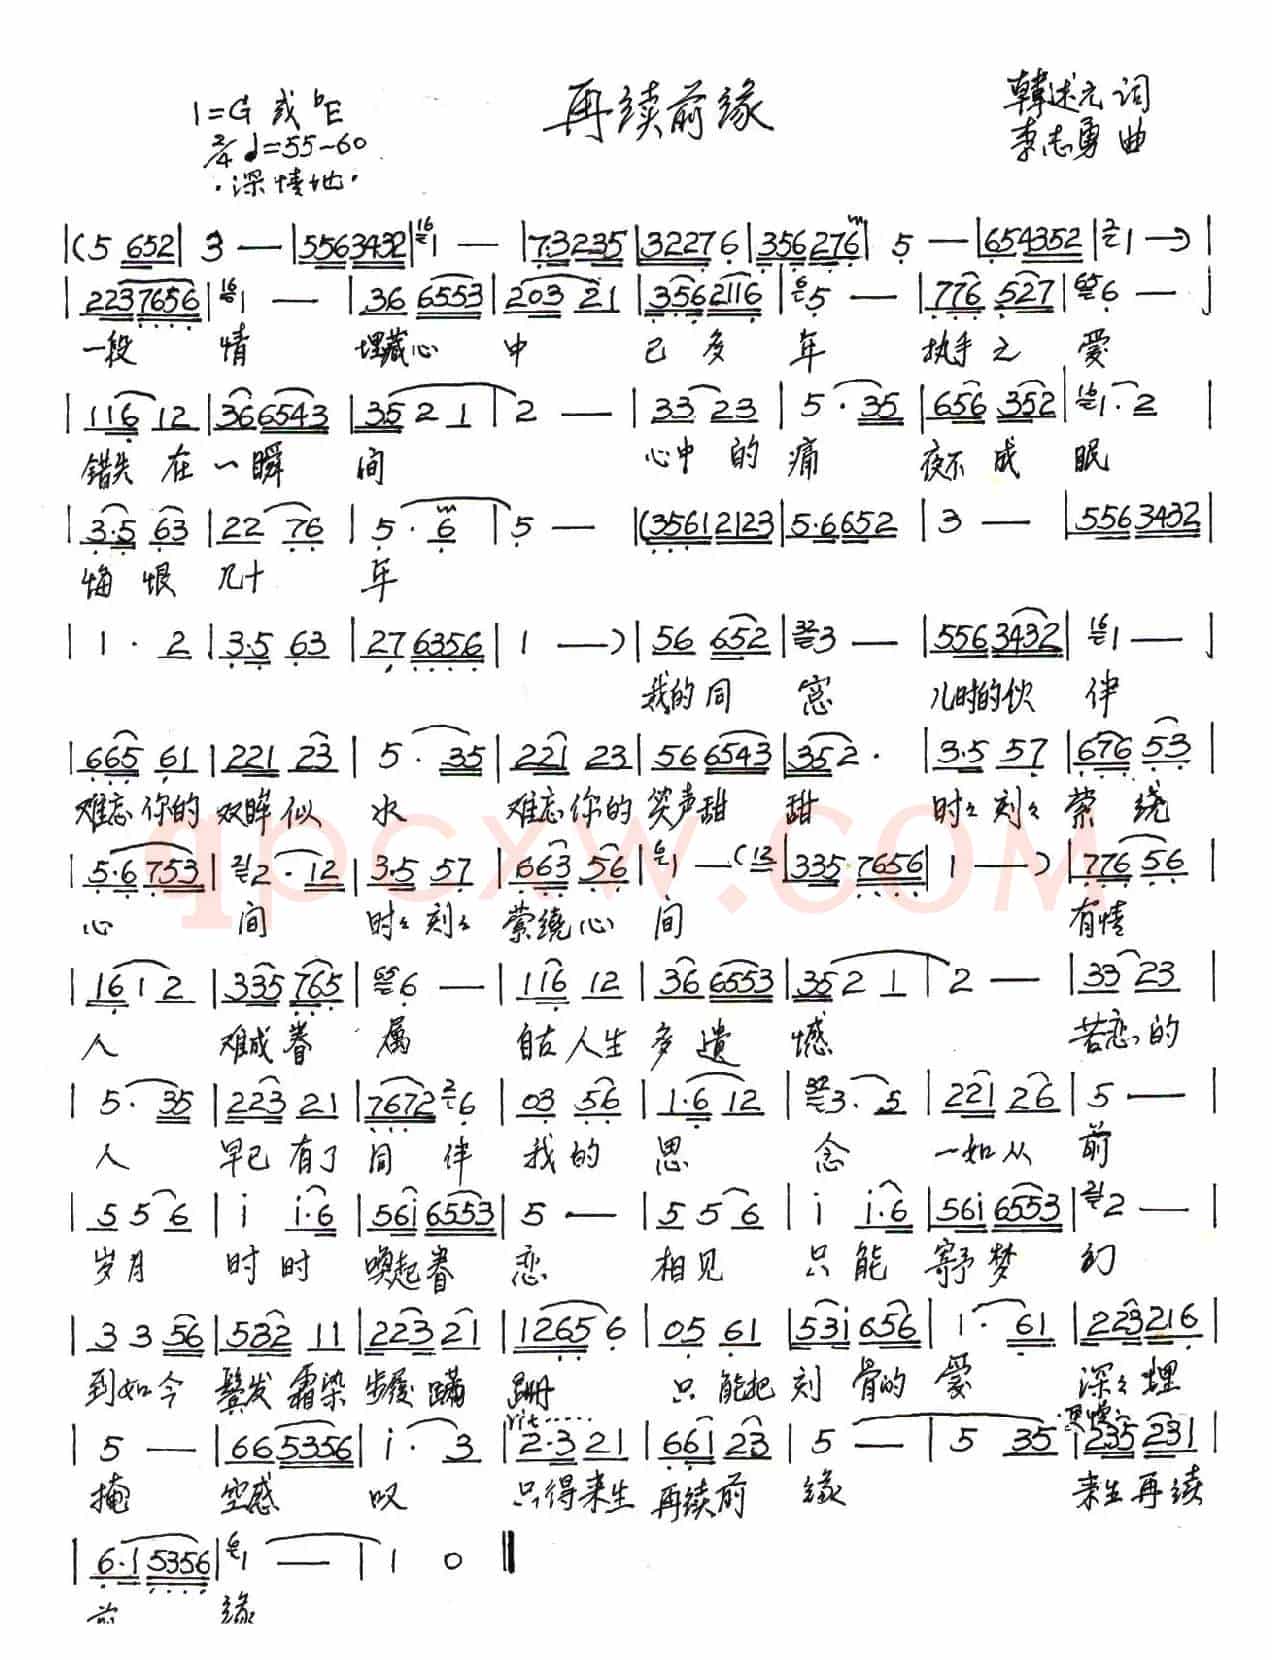 再续前缘
1=G 或 ♭E
2/4 ♩=55~60
·深情地·
韩述元 词
李志勇 曲
|(5 652| 3 — |5563432| 1 — |7·3235|322276|356276| 5 — |654352| 1 —)|
|2237656| 1 — |36 6553|203 21|3562116| 5 — |776 527| 6 — |
一段 情 埋藏心 中 已多年 执手之 爱
|116 12|366543|35 2 1| 2 — |33 23|5·35|656 352|1·2|
错失在一瞬 间 心中的痛 夜不成 眠
|3·5 63|22 76|5·6|5 — |(35612123|5·6652|3 — |5563432|
悔恨 几十 年
|1·2|3·5 63|27 6356|1 —)|56 652|3 — |5563432|1 — |
我的同 窗 儿时的伙 伴
|665 61|221 23|5·35|221 23|56 6543|35 2·|3·5 57|676 53|
难忘你的 双眸似 水 难忘你的 笑声甜 甜 时々刻々 萦绕
|5·6 753|2·12|3·5 57|663 56|1 — (12|335 7656|1 —)|776 56|
心 间 时々刻々 萦绕心 间 有情
|16 1 2|335 765|6 — |116 12|36 6553|35 2 1|2 — |33 23|
人 难成眷 属 自古人生 多遗 憾 苦恋的
|5·35|223 21|7672 6|03 56|1·6 12|3·5|221 26|5 — |
人 早已有了 同伴 我的 思 念 一如从 前
|5 5 6|i i·6|56i 6553|5 — |5 5 6|i i·6|56i 6553|2 — |
岁月 时时 唤起眷 恋 相见 只能 寄予梦 幻
|3 3 56|532 11|223 21|1265 6|05 61|53i 656|1·61|223216|
到如今 鬓发霜染 步履蹒 跚 只能把刻骨的 爱 深々埋
rit······
·更慢·
|5 — |66 5356|i·3|2·3 21|661 23|5 — |5 35|235 231|
掩 空感 叹 只得来生 再续前 缘 来生再续
|6·1 5356|1 — |1 0‖
前 缘
qpcxw.com